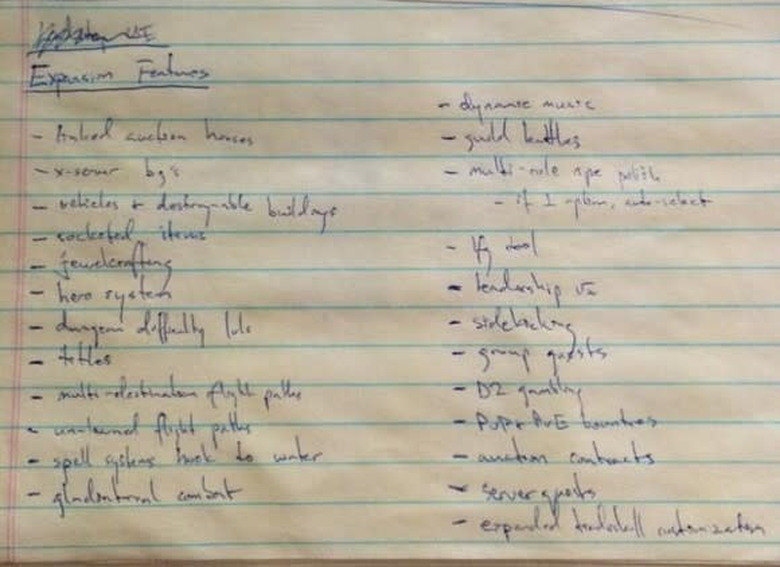 Expansion Features
- linked auction houses
- x-server bg's
- vehicles + destroy-able buildings
- socketed items
- jewelcrafting
- hero system
- dungeon difficulty lvls
- titles
- multi-destination flight paths
- un-learned flight paths
- spell systems hook to water
- gladiatorial combat
- dynamic music
- guild battles
- multi-role npc polish
- if 1 option, auto-select
- lfg tool
- leadership
- sidekicking
- group quests
- D2 gambling
- PvP + PvE bounties
- auction contracts
- server quests
- expanded tradeskill customization